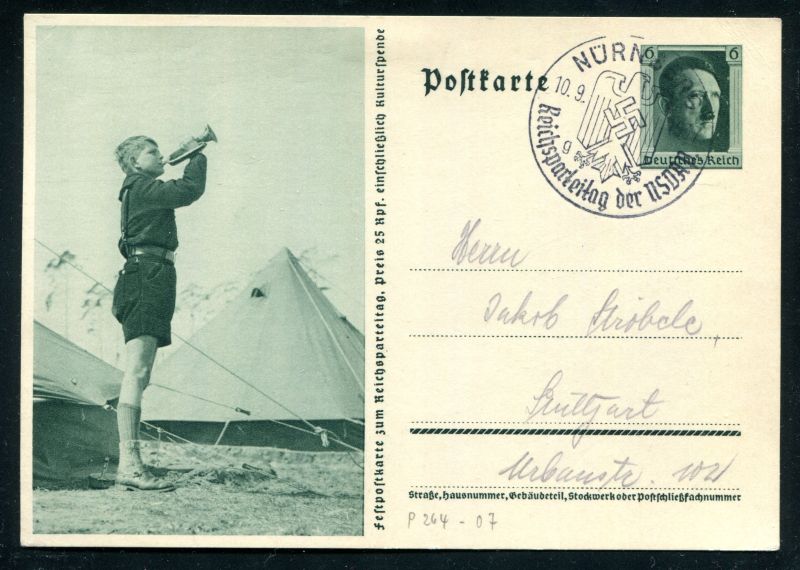 Festpostkarte zum Reichsparteitag. Preis 25 Rpf. einschließlich Kulturspende
Postkarte
NÜRN
10.9.
g
Reichsparteitag der NSDAP
6 6
Deutsches Reich
Herrn
Jakob Ströbele,
Stuttgart
Urbanstr.
Straße, Hausnummer, Gebäudeteil, Stockwerk oder Postschließfachnummer
P 264 - 07